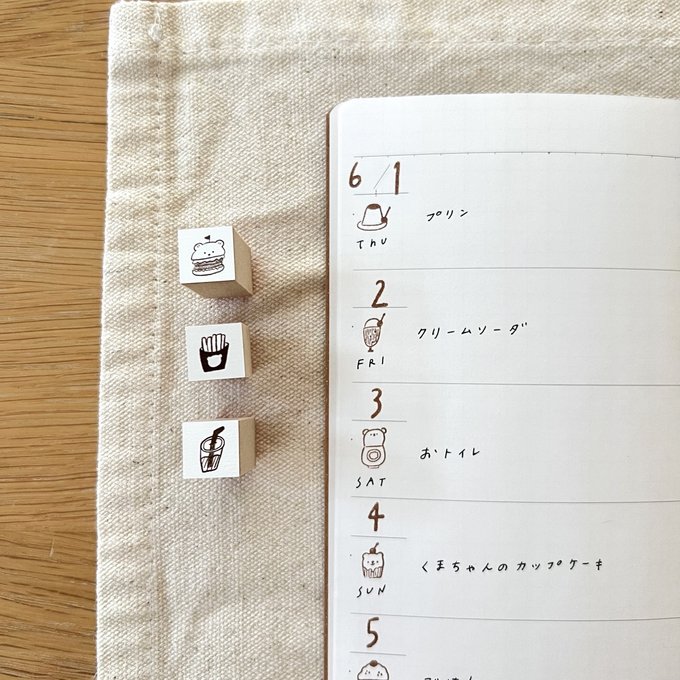 6/1
THU
プリン
2
FRI
クリームソーダ
3
SAT
おトイレ
4
SUN
くまちゃんのカップケーキ
5